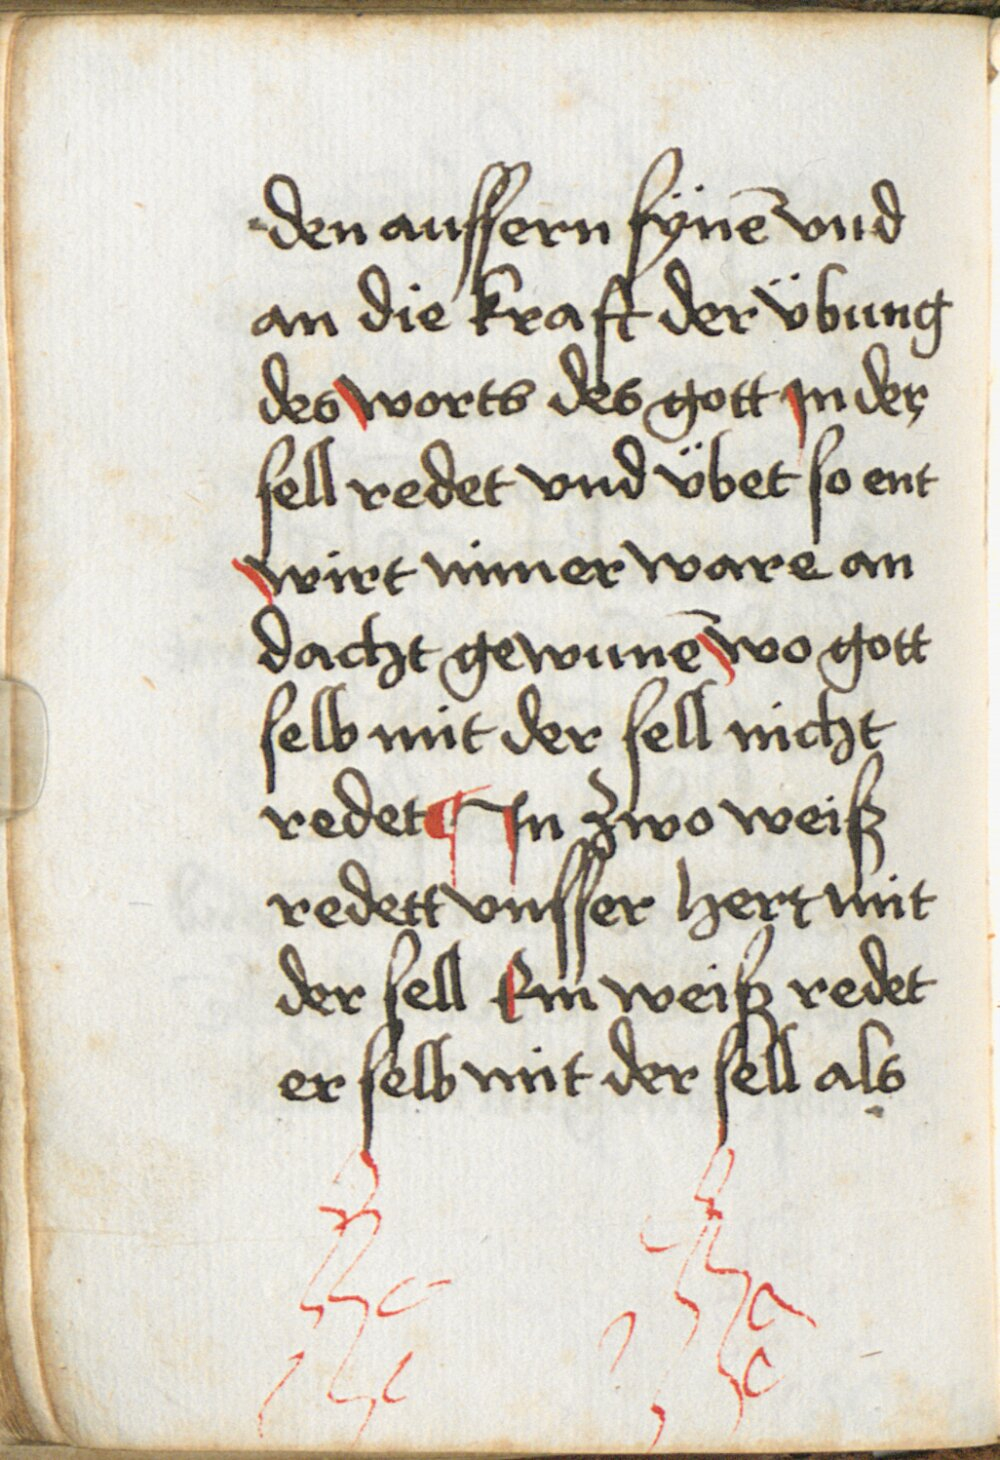 den aussern sÿnē vnd
an die kraft der v̈bung
des worts des gott in der
sell redet vnd v̈bet so ent
wirt nimer ware an
dacht gewunē wo gott
selb mit der sell nicht
redet ¶ In zwo weiß
redett vnsser herr mit
der sell Ein weiß redet
er selb mit der sell als